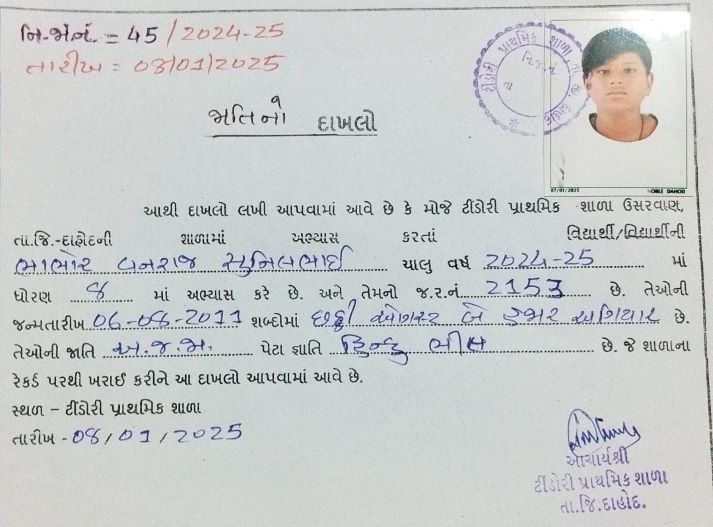 નિ.જા.નં. = 45/2024-25
તારીખ = 08/01/2025
ટીંડોરી પ્રાથમિક શાળા
07/01/2025 NOBLE DAHOD
જાતિનો દાખલો
આથી દાખલો લખી આપવામાં આવે છે કે મોજે ટીંડોરી પ્રાથમિક શાળા ઉસરવાણ,
તા.જિ.-દાહોદની શાળામાં અભ્યાસ કરતાં વિદ્યાર્થી/વિદ્યાર્થીની
ભાભોર ધનરાજ સુનિલભાઈ ચાલુ વર્ષ 2024-25 માં
ધોરણ ૪ માં અભ્યાસ કરે છે. અને તેમનો જ.ર.નં. 2153 છે. તેઓની
જન્મતારીખ 06-08-2011 શબ્દોમાં છઠ્ઠી ઓગસ્ટ બે હજાર અગિયાર છે.
તેઓની જાતિ અ.જ.જા. પેટા જ્ઞાતિ હિન્દુ ભીલ છે. જે શાળાના
રેકર્ડ પરથી ખરાઈ કરીને આ દાખલો આપવામાં આવે છે.
સ્થળ – ટીંડોરી પ્રાથમિક શાળા
તારીખ - 08/01/2025
આચાર્યશ્રી
ટીંડોરી પ્રાથમિક શાળા
તા.જિ.દાહોદ.